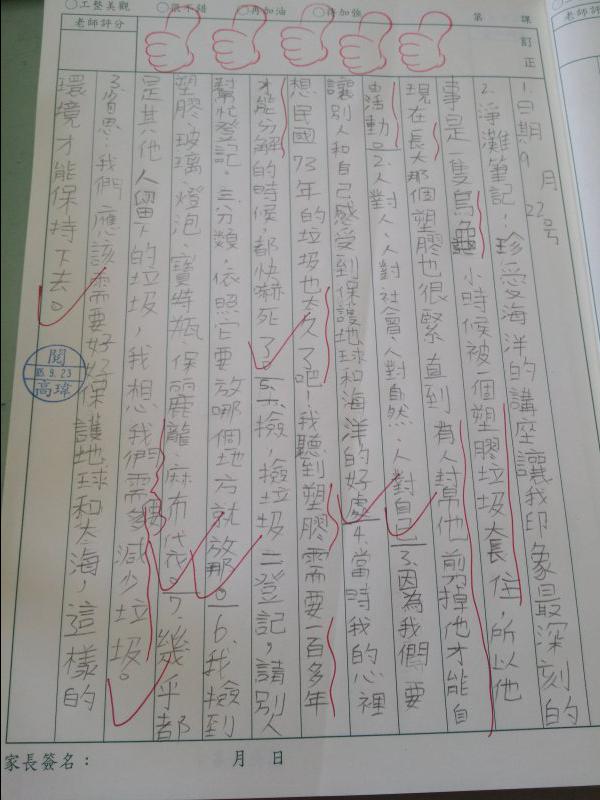 ○工整美觀
○很不錯
○再加油
○待加強
第 課
老師評分
訂正
老師評分
1.日期9月22號
2.淨灘筆記:珍愛海洋的講座讓我印象最深刻的
事是一隻烏龜小時候被一個塑膠垃圾大長住,所以他
現在長大那個塑膠也很緊直到有人對幫他剪掉他才能自
活動。2.人對人、人對社會、人對自然、人對自己3.因為我們要
讓別人和自己感受到保護地球和海洋的好處4.當時我的心裡
想民國73年的垃圾也太久了吧!我聽到塑膠需要一百多年
才能分解的時候,都快嚇死了5.一撿,撿垃圾二登記,請別人
幫忙登記。三分類,依照它要放哪個地方就放那。6.我撿到
塑膠、玻璃、燈泡、寶特瓶、保麗龍、麻布代衣。7.幾乎都
是其他人留下的垃圾,我想我們需要多減少垃圾。
3.省思:我們應該需要好好保護地球和大海,這樣的
環境才能保持下去。
閱
9.23
高瑋
家長簽名:
月 日